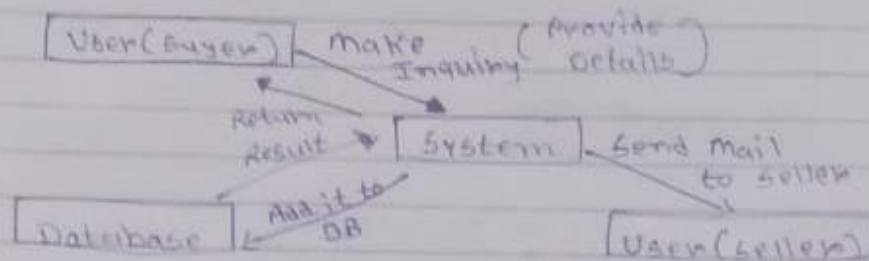 User(Buyer) Make (Provide
Inquiry Details)
Return
Result
System Send Mail
to seller
Add it to
DB
Database
User(seller)